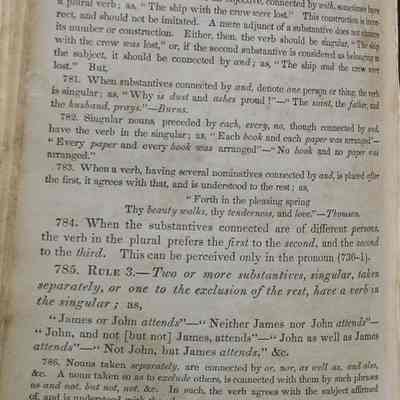 objective, connected by with, sometimes have
a plural verb; as, "The ship with the crew were lost." This construction is incor-
rect, and should not be imitated. A mere adjunct of a substantive does not change
its number or construction. Either, then, the verb should be singular, "The ship
with the crew was lost," or, if the second substantive is considered as belonging to
the subject, it should be connected by and; as, "The ship and the crew were
lost." But,
781. When substantives connected by and, denote one person or thing, the verb
is singular; as, "Why is dust and ashes proud!"—"The saint, the father, and
the husband, prays."—Burns.
782. Singular nouns preceded by each, every, no, though connected by and,
have the verb in the singular; as, "Each book and each paper was arranged"—
"Every paper and every book was arranged"—"No book and no paper was
arranged."
783. When a verb, having several nominatives connected by and, is placed after
the first, it agrees with that, and is understood to the rest; as,
"Forth in the pleasing spring
Thy beauty walks, thy tenderness, and love."—Thomson.
784. When the substantives connected are of different persons,
the verb in the plural prefers the first to the second, and the second
to the third. This can be perceived only in the pronoun (736-1).
785. RULE 3.—Two or more substantives, singular, taken
separately, or one to the exclusion of the rest, have a verb in
the singular; as,
"James or John attends"—"Neither James nor John attends"—
"John, and not [but not] James, attends"—"John as well as James
attends"—"Not John, but James attends," &c.
786. Nouns taken separately, are connected by or, nor, as well as, and also,
&c. A noun taken so as to exclude others, is connected with them by such phrases
as and not, but not, not, &c. In such, the verb agrees with the subject affirmed
of, and is understood with the